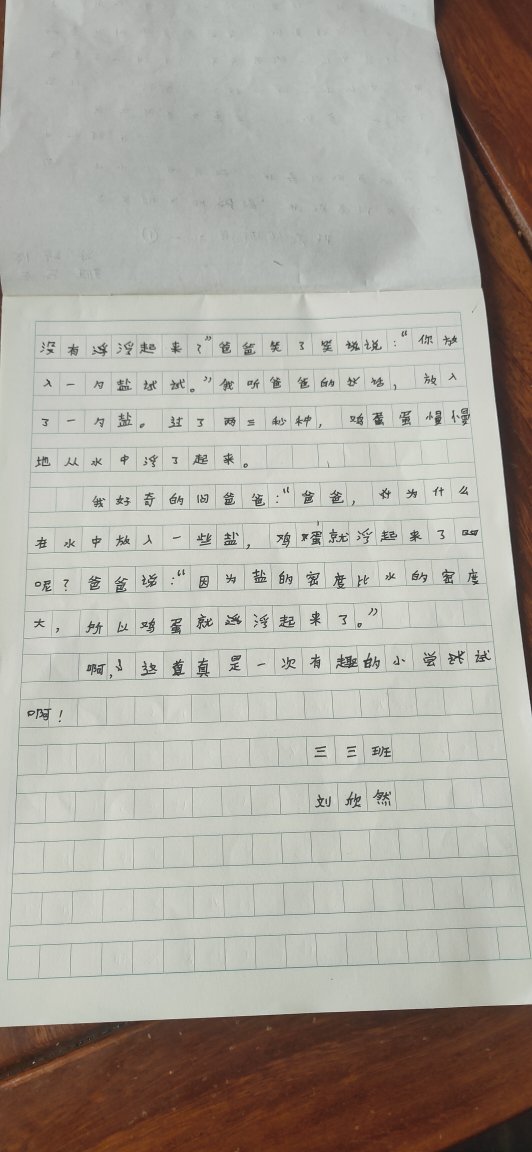 没有浮浮起来?”爸爸笑了笑说说:“你放
入一勺盐试试。”我听爸爸的话, 放入
了一勺盐。过了两三秒种, 鸡蛋蛋慢慢
地从水中浮了起来。
我好奇的问爸爸:“爸爸, 为什么
在水中放入一些盐, 鸡蛋就浮起来了
呢?爸爸说:“因为盐的密度比水的密度
大, 所以鸡蛋就浮起来了。”
啊, 这真是一次有趣的小尝试
啊!
三三班
刘欣然